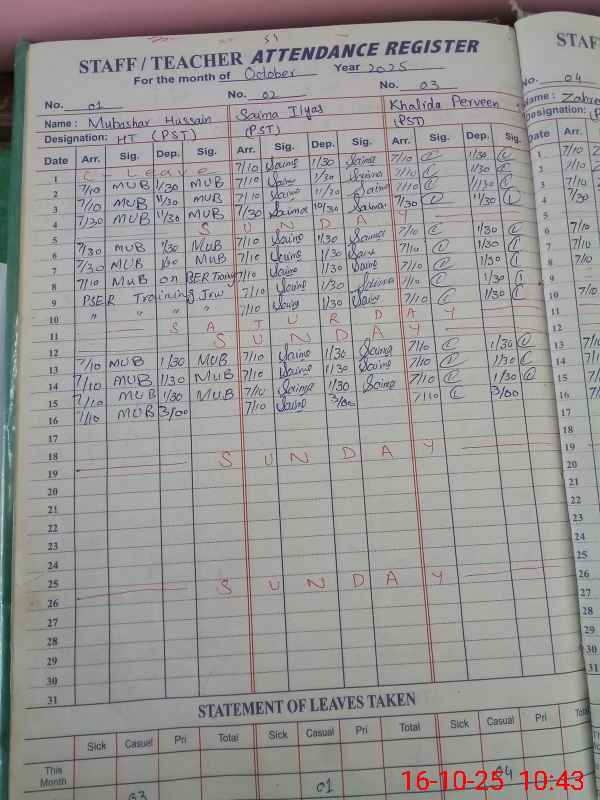 STAFF / TEACHER ATTENDANCE REGISTER
For the month of October Year 2025
No. 01 No. 02 No. 03
Name : Mubashar Hussain Saima Ilyas Khalida Perveen
Designation: HT (PST) (PST) (PST)
Date Arr. Sig. Dep. Sig. Arr. Sig. Dep. Sig. Arr. Sig. Dep. Sig.
1 C - Leave 7/10 Saima 1/30 Saima 7/10 1/30
2 7/10 MUB 1/30 MUB 7/10 Saima 1/30 Saima 7/10 1/30
3 7/10 MUB 11/30 MUB 7/10 Saima 11/30 Saima 7/10 11/30
4 7/30 MUB 11/30 MUB 7/30 Saima 10/30 Saima 7/30 11/30
5 S U N D A Y
6 7/30 MUB 1/30 MUB 7/10 Saima 1/30 Saima 7/10 1/30
7 7/30 MUB MUB 7/10 Saima 1/30 Saima 7/10 1/30
8 7/10 MUB on PSER Training 7/10 Saima 1/30 Saima 7/10 1/30
9 PSER Training 7/10 Saima 1/30 Saima 7/10 1/30
10 " " " " 7/10 Saima 1/30 Saima 7/10 1/30
11 S A T U R D A Y
12 S U N D A Y
13 7/10 MUB 1/30 MUB 7/10 Saima 1/30 Saima 7/10 1/30
14 7/10 MUB 1/30 MUB 7/10 Saima 1/30 Saima 7/10 1/30
15 7/10 MUB 1/30 MUB 7/10 Saima 1/30 Saima 7/10 1/30
16 7/10 MUB 3/00 7/10 Saima 3/00 7/10 3/00
17
18
19 S U N D A Y
20
21
22
23
24
25
26 S U N D A Y
27
28
29
30
31
STATEMENT OF LEAVES TAKEN
Sick Casual Pri Total Sick Casual Pri Total Sick Casual Pri
This Month 03 01 04
STAF
No. 04
Name :
Designation: (P
Date Arr.
1 7/10
2 7/10
3 7/10
4 7/30
5
6 7/10
7 7/10
8 7/10
9
10 7/10
11
12
13 7/10
14 7/10
15 7/10
16 7/10
17
18
19
20
21
22
23
24
25
26
27
28
29
30
31
16-10-25 10:43